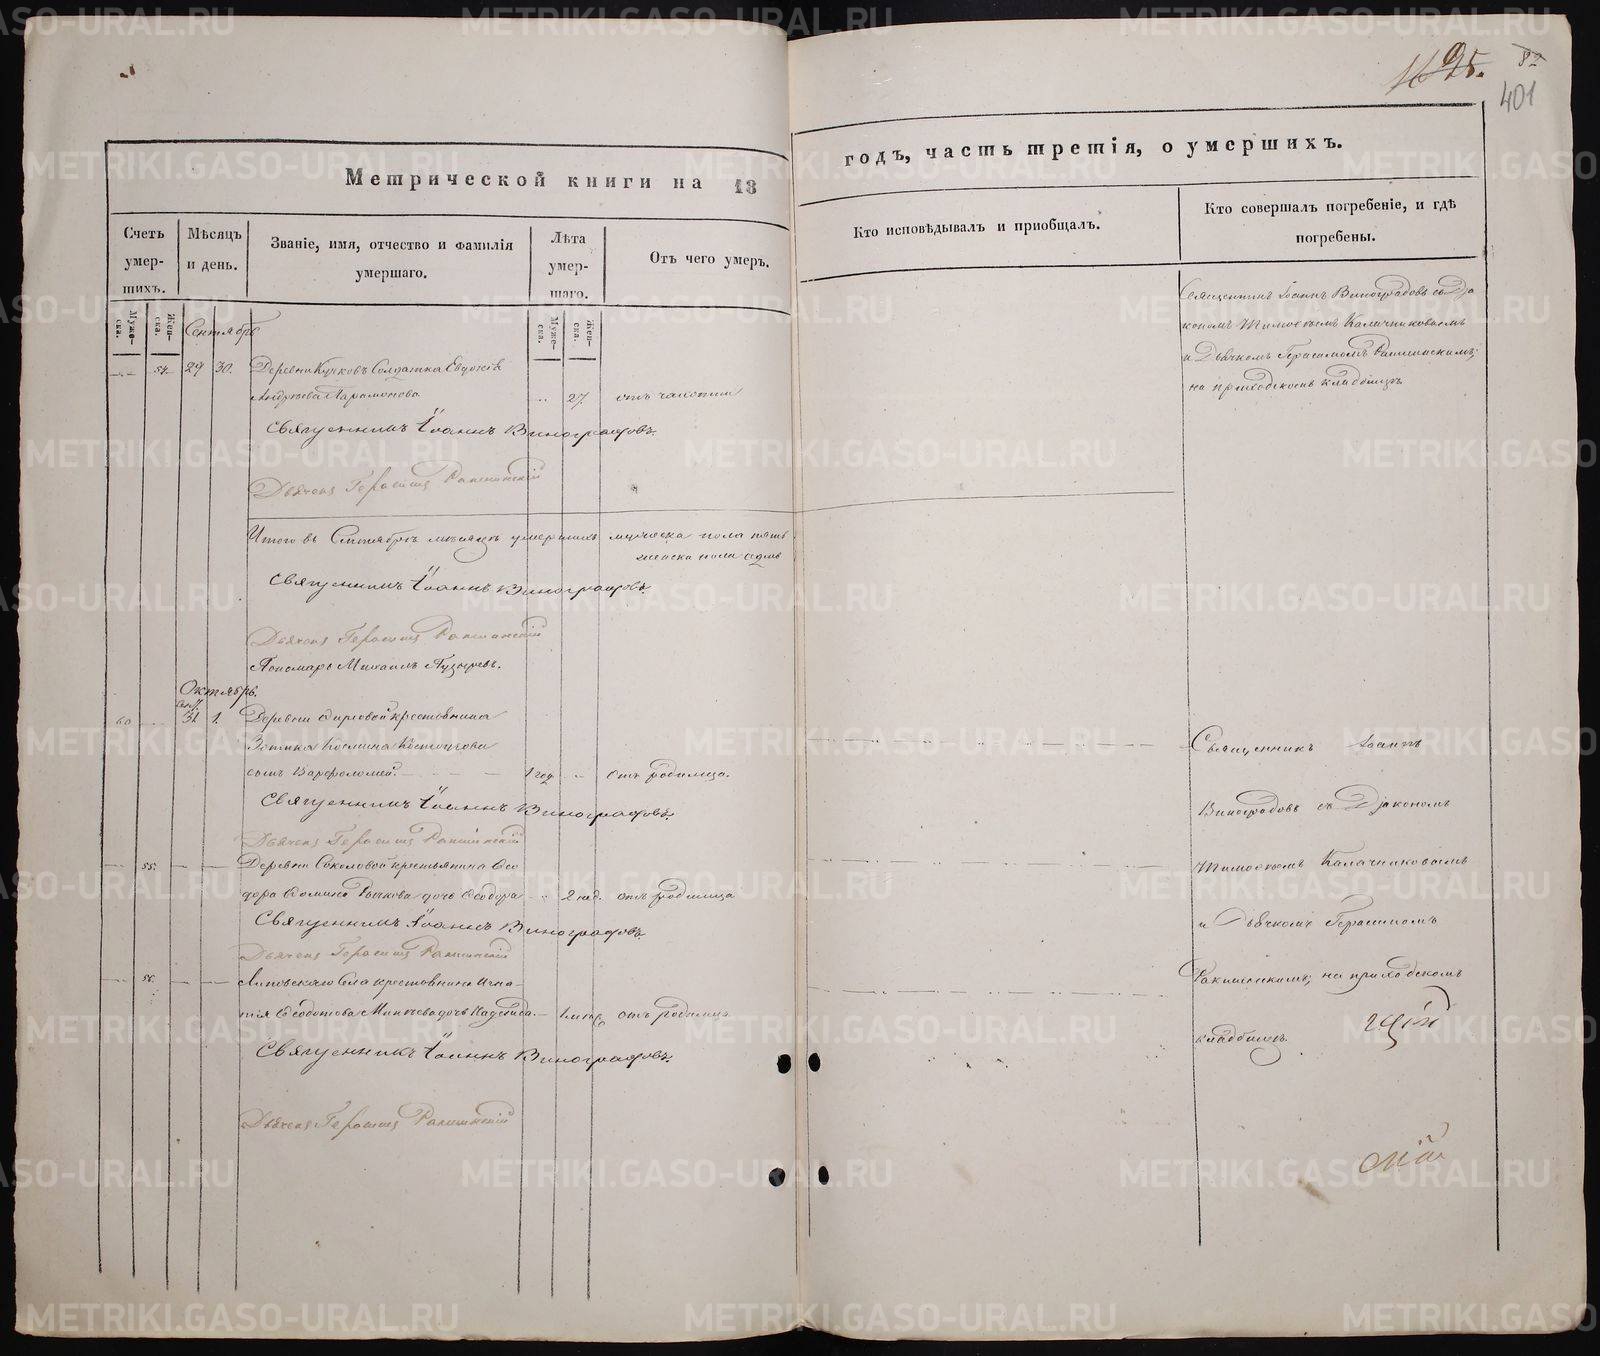 95.
82
401
Метрической книги на 18
годъ, часть третія, о умершихъ.
Счетъ умер-шихъ.
Мѣсяцъ и день.
Званіе, имя, отчество и фамилія умершаго.
Лѣта умер-шаго.
Отъ чего умеръ.
Кто исповѣдывалъ и пріобщалъ.
Кто совершалъ погребеніе, и гдѣ погребены.
Муже-ска.
Жен-ска.
Муже-ска.
Жен-ска.
Сентябрь
54. 29 30. Деревни Солдатка Евдокія
Андреева Парамонова 27. отъ чахотки
Священникъ Іоаннъ Виноградовъ.
Дьячекъ Герасимъ
Священникъ Іоаннъ Виноградовъ съ Діа
кономъ Тимоѳеемъ Калачниковымъ
и Дьячкомъ Герасимомъ
на приходскомъ кладбищѣ
Итого въ Сентябрѣ мѣсяцѣ умершихъ мужеска пола пять
женска пола седмь
Священникъ Іоаннъ Виноградовъ.
Дьячекъ Герасимъ
Пономарь Михаилъ Пузыревъ.
Октябрь.
60 31 1. Деревни крестьянина
Зотика Космина
сынъ Варфоломей. 1 год. отъ родимца.
Священникъ Іоаннъ Виноградовъ.
Дьячекъ Герасимъ
55. Деревни Соколовой крестьянина Ѳео
дора Ѳомина Рычкова дочь Ѳеодора 2 нед. отъ родимца
Священникъ Іоаннъ Виноградовъ.
Дьячекъ Герасимъ
56. Села крестьянина Игна-
тія Ѳедотова дочь Надежда. отъ родимца
Священникъ Іоаннъ Виноградовъ.
Дьячекъ Герасимъ
Священникъ Іоаннъ
Виноградовъ съ Діакономъ
Тимоѳеемъ Калачниковымъ
и Дьячкомъ Герасимомъ
на приходскомъ
кладбищѣ.
METRIKI.GASO-URAL.RU